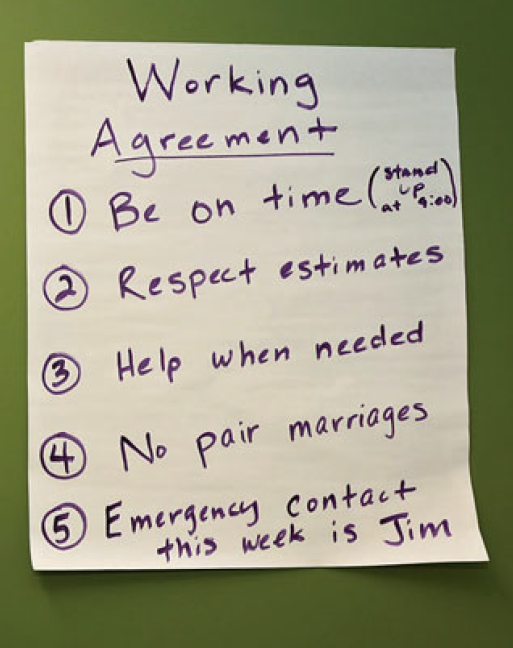 Working
Agreement
① Be on time (stand up at 9:00)
② Respect estimates
③ Help when needed
④ No pair marriages
⑤ Emergency contact
this week is Jim